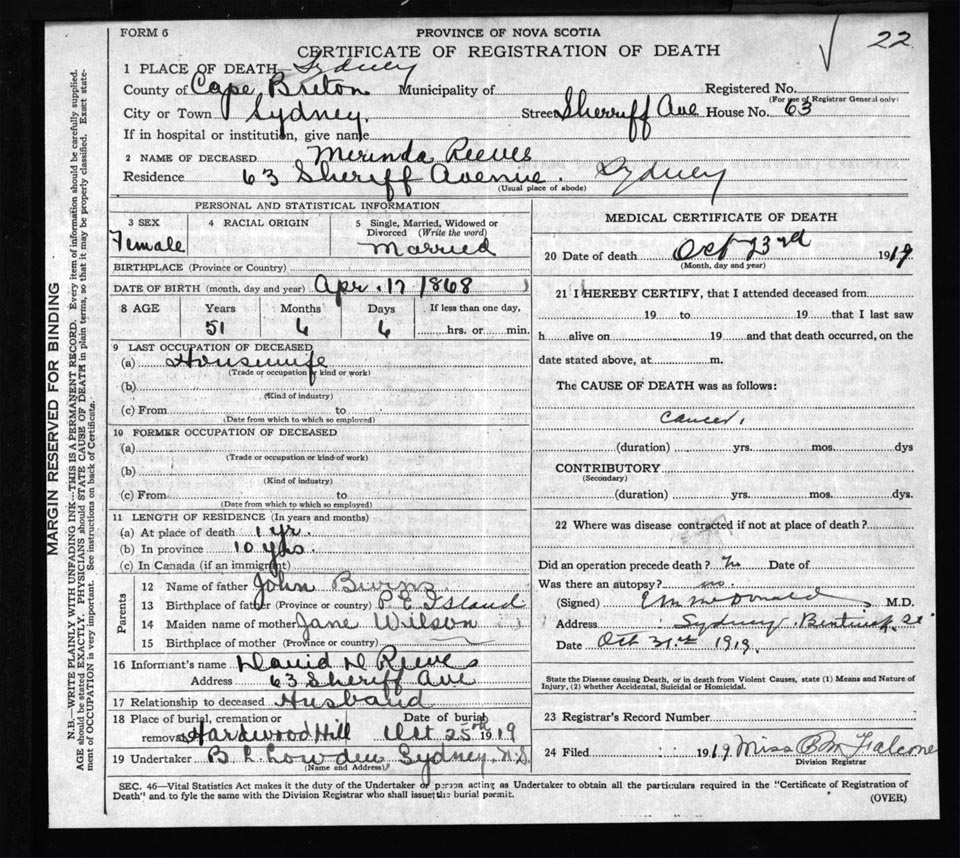 FORM 6
PROVINCE OF NOVA SCOTIA
22
CERTIFICATE OF REGISTRATION OF DEATH
1 PLACE OF DEATH Sydney
County of Cape Breton Municipality of Registered No.
(For use of Registrar General only)
City or Town Sydney. Street Sherriff Ave House No. 63
If in hospital or institution, give name
2 NAME OF DECEASED Merinda Reeves
Residence 63 Sheriff Avenue. Sydney
(Usual place of abode)
PERSONAL AND STATISTICAL INFORMATION
3 SEX 4 RACIAL ORIGIN 5 Single, Married, Widowed or Divorced (Write the word)
Female Married
BIRTHPLACE (Province or Country)
DATE OF BIRTH (month, day and year) Apr. 17 1868
8 AGE Years Months Days If less than one day,
51 6 6 hrs. or min.
9 LAST OCCUPATION OF DECEASED
(a) Housewife
(Trade or occupation or kind or work)
(b)
(Kind of industry)
(c) From to
(Date from which to which so employed)
10 FORMER OCCUPATION OF DECEASED
(a)
(Trade or occupation or kind of work)
(b)
(Kind of industry)
(c) From to
(Date from which to which so employed)
11 LENGTH OF RESIDENCE (In years and months)
(a) At place of death 1 yr.
(b) In province 10 yrs.
(c) In Canada (if an immigrant)
Parents
12 Name of father John Burns
13 Birthplace of father (Province or country) P E Island
14 Maiden name of mother Jane Wilson
15 Birthplace of mother (Province or country)
16 Informant's name David D Reeves
Address 63 Sheriff Ave
17 Relationship to deceased Husband
18 Place of burial, cremation or Date of burial
removal Hardwood Hill Oct 25th 1919
19 Undertaker B. L. Lowden Sydney N.S.
(Name and Address)
MEDICAL CERTIFICATE OF DEATH
20 Date of death Oct 23rd 1919
(Month, day and year)
21 I HEREBY CERTIFY, that I attended deceased from
19 to 19 that I last saw
h alive on 19 and that death occurred, on the
date stated above, at m.
The CAUSE OF DEATH was as follows:
Cancer.
(duration) yrs. mos. dys
CONTRIBUTORY
(Secondary)
(duration) yrs. mos. dys.
22 Where was disease contracted if not at place of death?
Did an operation precede death? no Date of
Was there an autopsy? no
(Signed) E M McDonald M.D.
Address Sydney
Date Oct 31st 1919.
State the Disease causing Death, or in death from Violent Causes, state (1) Means and Nature of
Injury, (2) whether Accidental, Suicidal or Homicidal.
23 Registrar's Record Number
24 Filed 1919 Miss
Division Registrar
SEC. 46—Vital Statistics Act makes it the duty of the Undertaker or person acting as Undertaker to obtain all the particulars required in the "Certificate of Registration of
Death" and to fyle the same with the Division Registrar who shall issue the burial permit. (OVER)
MARGIN RESERVED FOR BINDING
N.B.—WRITE PLAINLY WITH UNFADING INK—THIS IS A PERMANENT RECORD. Every item of information should be carefully supplied.
AGE should be stated EXACTLY. PHYSICIANS should STATE CAUSE OF DEATH in plain terms, so that it may be properly classified. Exact state-
ment of OCCUPATION is very important. See instructions on back of Certificate.